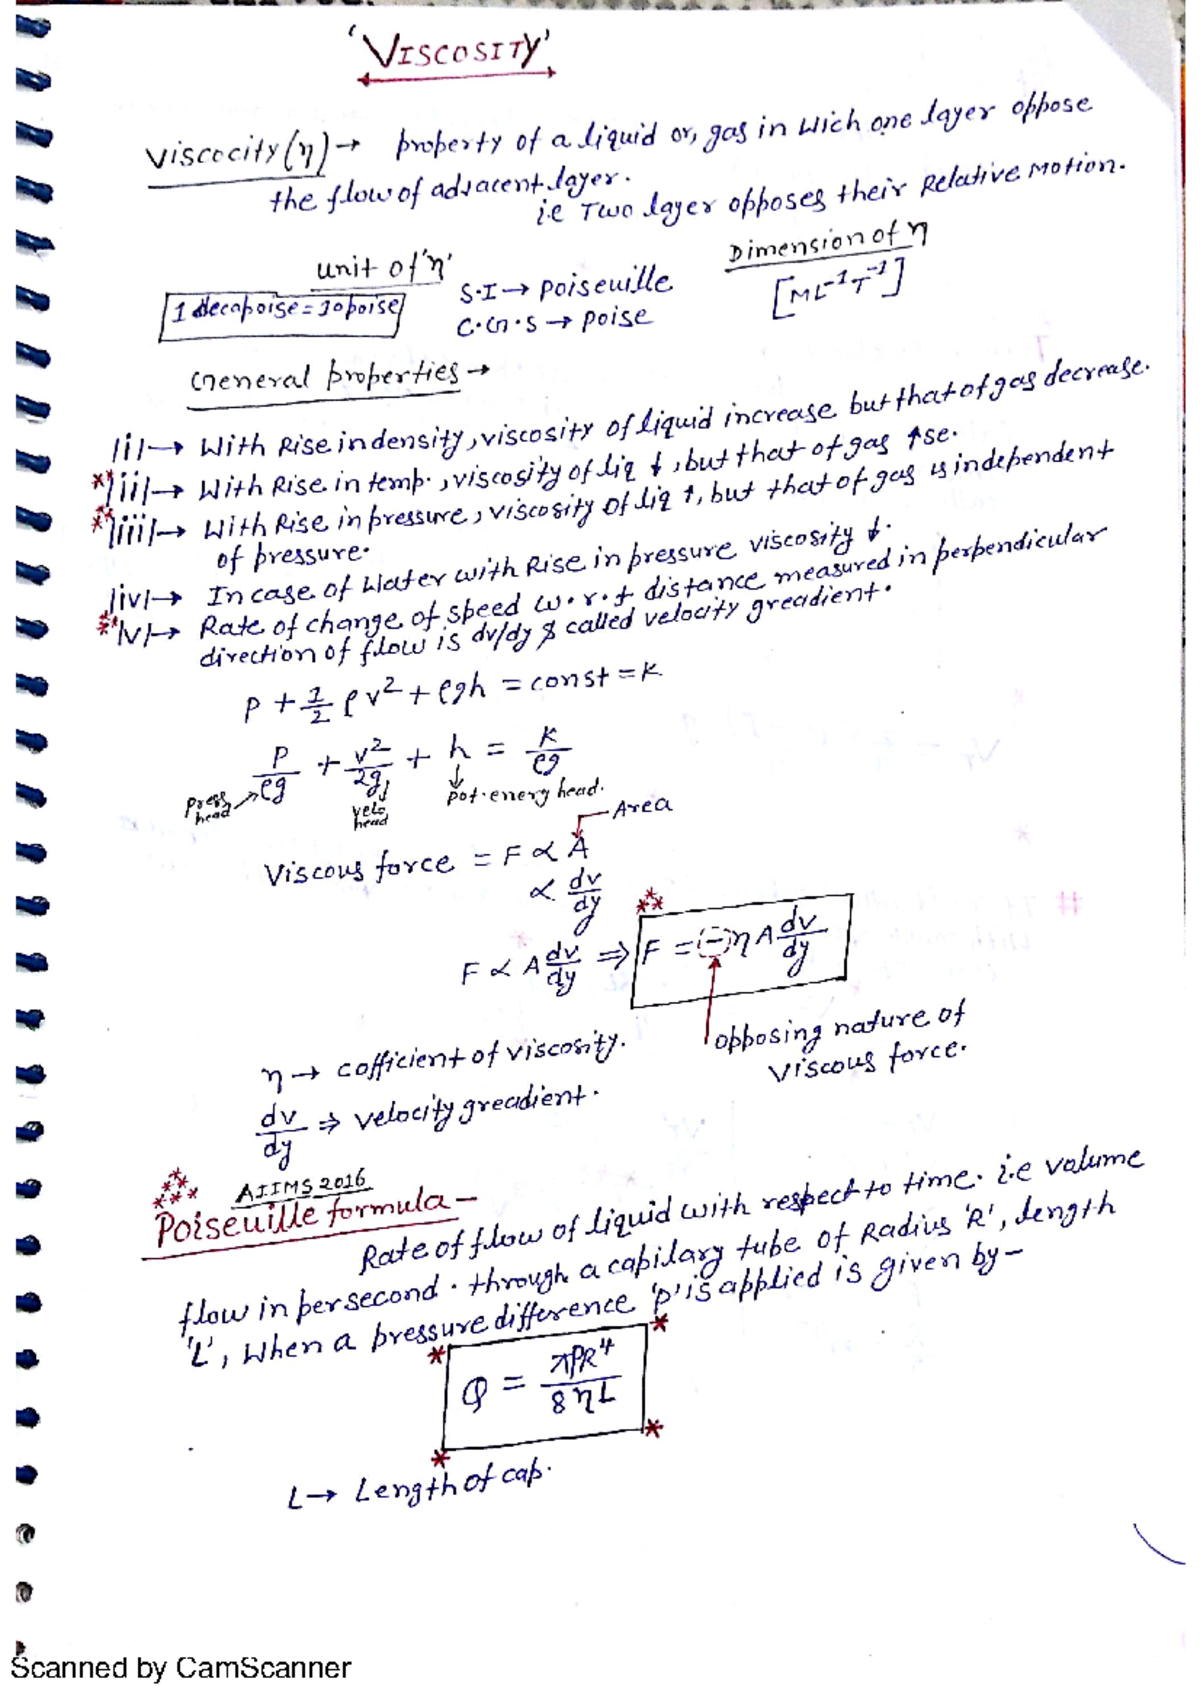 'VISCOSITY'
Viscocity (η) → property of a liquid or, gas in wich one layer oppose
the flow of adjacent layer.
i.e Two layer opposes their Relative Motion.
unit of 'η'
Dimension of η
1 decapoise = 10 poise
S.I → Poiseuille
[ML⁻¹T⁻¹]
C.G.S → Poise
General properties →
(i) → With Rise in density, viscosity of liquid increase but that of gas decrease.
**(ii) → With Rise in temp., viscosity of liq ↓, but that of gas ↑se.
**(iii) → With Rise in pressure, viscosity of liq ↑, but that of gas is independent
of pressure.
(iv) → In case of Water with Rise in pressure viscosity ↓.
**(v) → Rate of change of speed w.r.t distance measured in perpendicular
direction of flow is dv/dy & called velocity greadient.
P + 1/2 ρv² + ρgh = const = K
P/ρg + v²/2g + h = K/ρg
Press head
velo head
pot. energ head.
Area
Viscous force = F ∝ A
∝ dv/dy
F ∝ A dv/dy ⇒ F = (-) η A dv/dy
opposing nature of
viscous force.
η → cofficient of viscosity.
dv/dy ⇒ velocity greadient.
AIIMS 2016
Poiseuille formula –
Rate of flow of liquid with respect to time. i.e volume
flow in per second. through a capilary tube of Radius 'R', length
'L', When a pressure difference 'p' is applied is given by –
Q = πPR⁴/8ηL
L → Length of cap.
Scanned by CamScanner